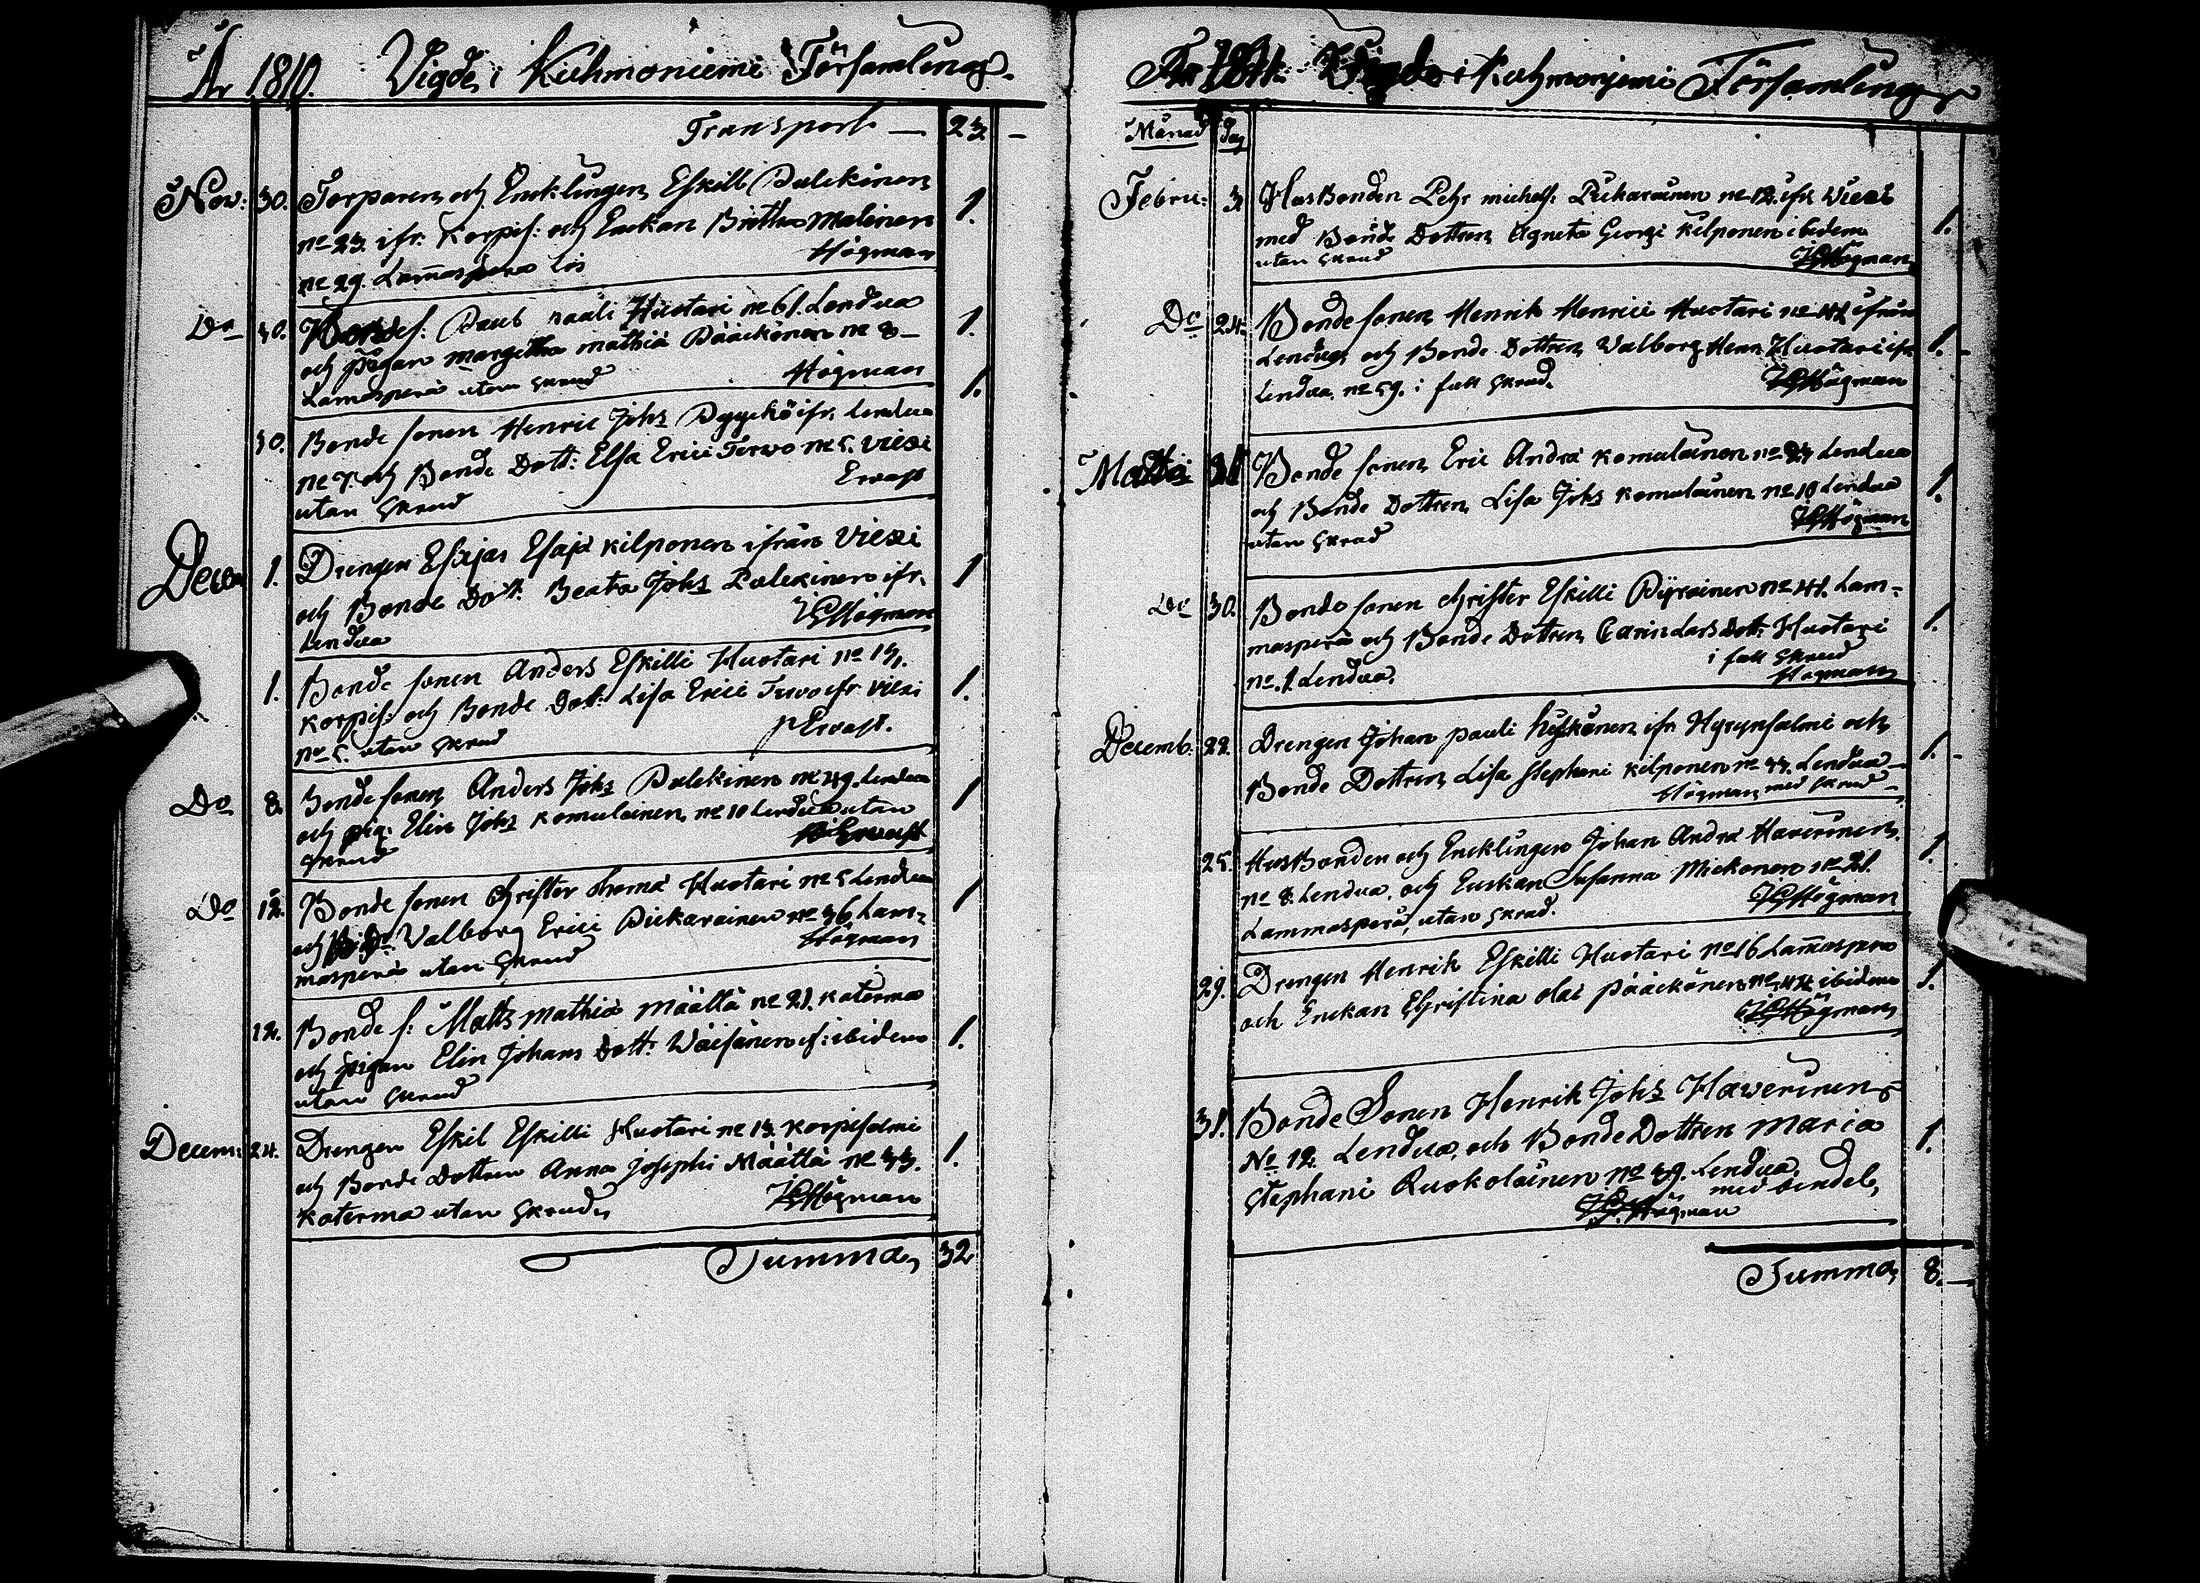 År 1810. Vigde i Kuhmoniemi Församling.
Transport — 23 —
Nov: 30. Torparen och Encklingen Eskill Pulckinen
no 23. ifr. Korpis: och Enckan Britha Malinen 1.
no 29. Lam̄asperä
Högman
Do 30. Paul Pauli Huotari no 61. Lendua 1.
och Pigan Margetha Mathiæ Pääckönen no 8—
Lamasperä utan skrud Högman 1.
30. Bonde sonen Henric Johs ifr. Lendua
no 7. och Bonde Dott: Elsa Erici Terwo no 5. Viexi
utan skrud Ervast
Decem 1. Drengen Esaias Esajæ Kilponen ifrån Viexi
och Bonde Dott: Beata Johs Pulckinen ifr. 1
Lendua Högman
1. Bonde sonen Anders Eskilli Huotari no 13.
Korpis: och Bonde Dott: Lisa Erici Terwo ifr Viexi 1.
no 5. utan skrud Ervast.
Do 8. Bonde sonen Anders Johs Pulckinen no 49. Lendua 1
och pig: Elin Johs Komulainen no 10 Lendua utan
skrud Ervast
Do 12. Bonde sonen Christer Thomæ Huotari no 5 Lendua 1
och Valborg Erici Pickarainen no 36 Lam-
masperä utan skrud Högman
12. Bonde s: Matts Mathiæ Määttä no 21. Katerma
och pigan Elin Johans Dott: Wäisänen if: ibidem 1.
utan skrud
Decem: 24. Drengen Eskil Eskilli Huotari no 13. Korpisalmi
och Bonde Dottren Anna Josephi Määttä no 33. 1.
Katerma utan skrud Högman
Summa 32
År 1811. Vigde i Kuhmoniemi Församling
Månad Dag
Febru: 3 HusBonden Pehr Michels: Pickarainen no 12. ifr Viexi
med Bonde Dottren Agneta Georgi Kilponen ibidem 1.
utan skrud Högman
Do 24. Bonde sonen Henrik Henrici Huotari ifrån
Lendua och Bonde Dottren Valborg Henr. Huotari ifr 1. -
Lendua no 59. i full skrud. Högman
31 Bonde sonen Eric Andræ Komulainen Lendua
och Bonde Dottren Lisa Johs Komulainen no 10 Lendua 1.
utan skrud Högman
Do 30. Bonde sonen Christer Eskilli Pyrainen no 41. Lam-
masperä och Bonde Dottren Carin Lars Dott: Huotari 1.
no. 1. Lendua. i full skrud
Högman
Decemb: 22. Drengen Johan Pauli ifr Hyrynsalmi och
Bonde Dottren Lisa Stephani Kilponen no 33. Lendua— 1. -
Högman med skrud—
25. HusBonden och Encklingen Johan Andræ Haverinen 1.
no 8. Lendua, och Enckan Susanna Mickonen no 21.
Lammasperä, utan skrud. Högman
29. Drengen Henrik Eskilli Huotari no 16 Lam̄asperä
och Enckan Christina Olai Pääckönen no 44 ibidem 1.
Högman
31. Bonde Sonen Henrik Johs Haverinen
No 12. Lendua, och Bonde Dottren Maria 1.
Stephani Ruokolainen no 39. Lendua.
med bindel
Högman
Summa 8.—